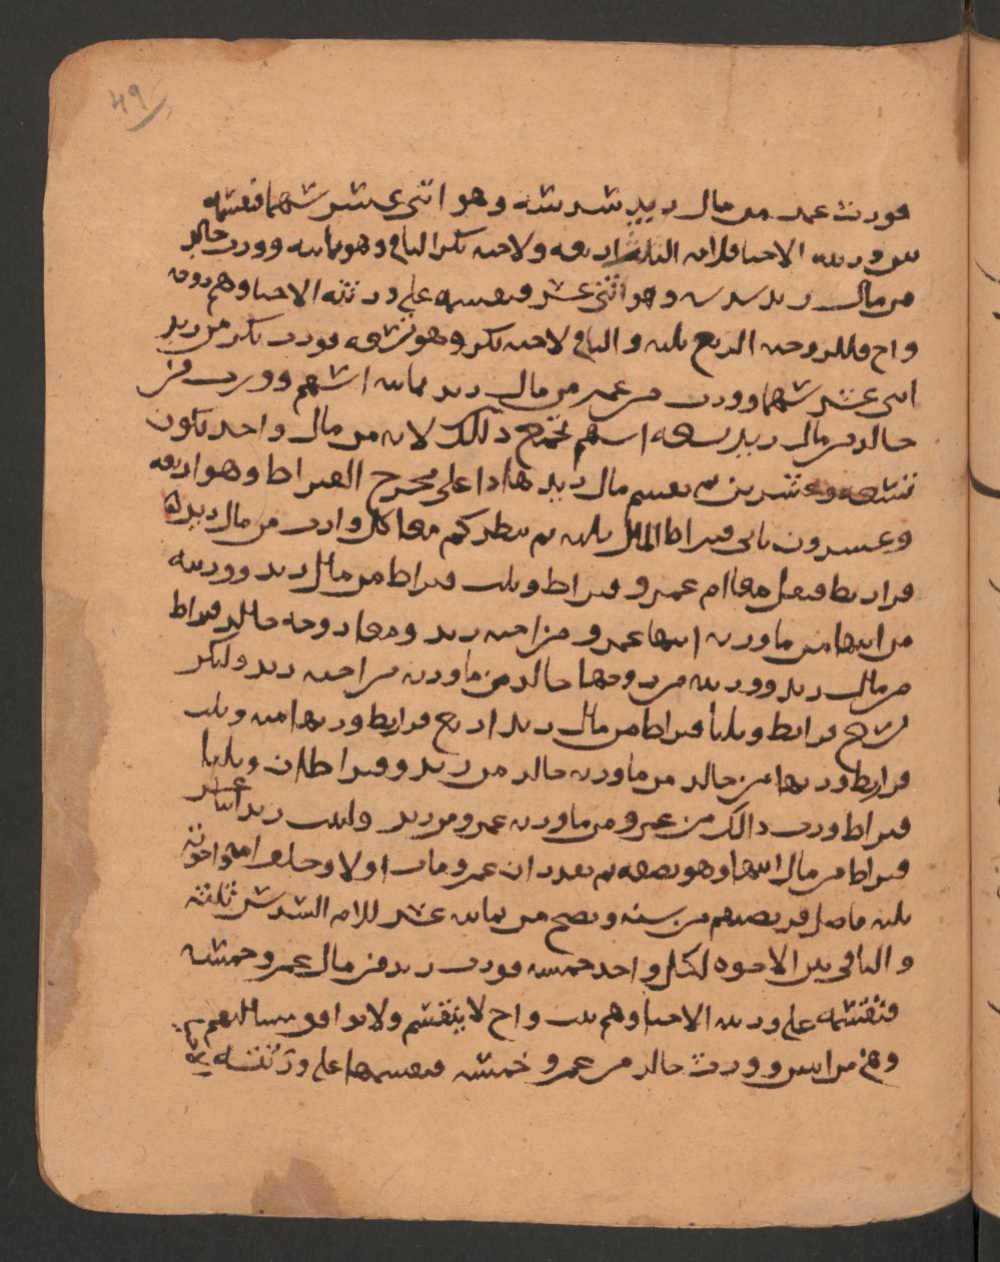 49
فورث عمر من مال زيد سدسه وهو اثني عشر سهما فقسمه
بين ورثته الاحيا فلامه الثلث اربعه ولاخيه بكر الباقي وهو ثمانيه وورث خالد
من مال زيد سدسه وهو اثني عشر فقسمه على ورثته الاحيا وهم زوجه
واخ فللزوجه الربع ثلثه والباقي لاخيه بكر وهو تسعه فورث بكر من زيد
اثني عشر سهما وورث من عمر من مال زيد ثمانيه اسهم وورث من
خالد من مال زيد تسعه اسهم تجتمع ذلك لانه من مال واحد تكون
تسعه وعشرين ثم تقسم مال زيد هاذا على مخرج القيراط وهو اربعه
وعشرون ياتي قيراط المال ثلثه ثم ينظر كم مع كل وارث من مال زيد
قراريط فيصل معا ام عمرو قيراط وثلث قيراط من مال زيد وورثته
من ابنها من ماورث ابنها عمرو من اخيه زيد ومعا زوجه خالد قيراط
من مال زيد وورثته من زوجها خالد من ماورث من اخيه زيد ولبكر
تسع قراريط وثلثا قيراط من مال زيد اربع قراريط ورثها منه وثلث
قراريط ورثها من خالد من ماورث خالد من زيد وقيراطان وثلثا
قيراط ورث ذالك من عمرو من ماورث عمرو من زيد ولبنت زيد اثنا عشر
قيراط من مال ابيها وهو نصفه ثم تقدر ان عمرو مات اولا وخلف امه واخوته
ثلثه فاصل فريضتهم من سته وتصح من ثمانيه عشر للام السدس ثلثه
والباقي بين الاخوه لكل واحد خمسه فورث زيد من مال عمرو خمسه
فتقسمه على ورثته الاحيا وهم بنت واخ لا ينقسم ولا يوافق مسالتهم
وهي من اثنين وورث خالد من عمرو خمسه فقسمها على ورثته